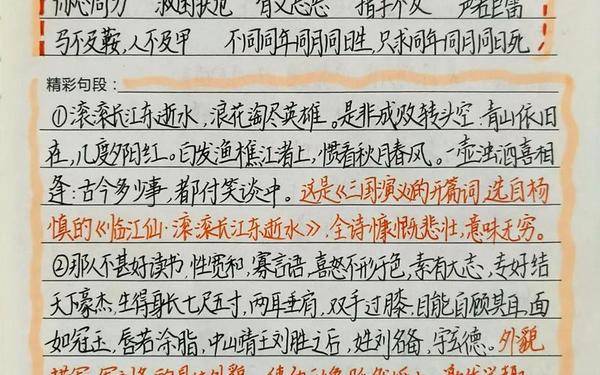 同心同力 救困扶危 有义忘恩 措手不及 声若巨雷
马不及鞍,人不及甲 不同同年同月同日生,只求同年同月同日死
精彩句段:
①滚滚长江东逝水,浪花淘尽英雄。是非成败转头空.青山依旧
在,几度夕阳红。白发渔樵江渚上,惯看秋月春风。一壶浊酒喜相
逢:古今多少事,都付笑谈中。这是《三国演义的开篇词,选自杨
慎的《临江仙·滚滚长江东逝水》,全诗慷慨悲壮,意味无穷。
②那人不甚好读书,性宽和,寡言语,喜怒不形于色,素有大志,专好结
天下豪杰,生得身长七尺五寸,两耳垂肩,双手过膝,目能自顾其耳,面
如冠玉,唇若涂脂,中山靖王刘胜之后,姓刘名备,字玄德。外貌